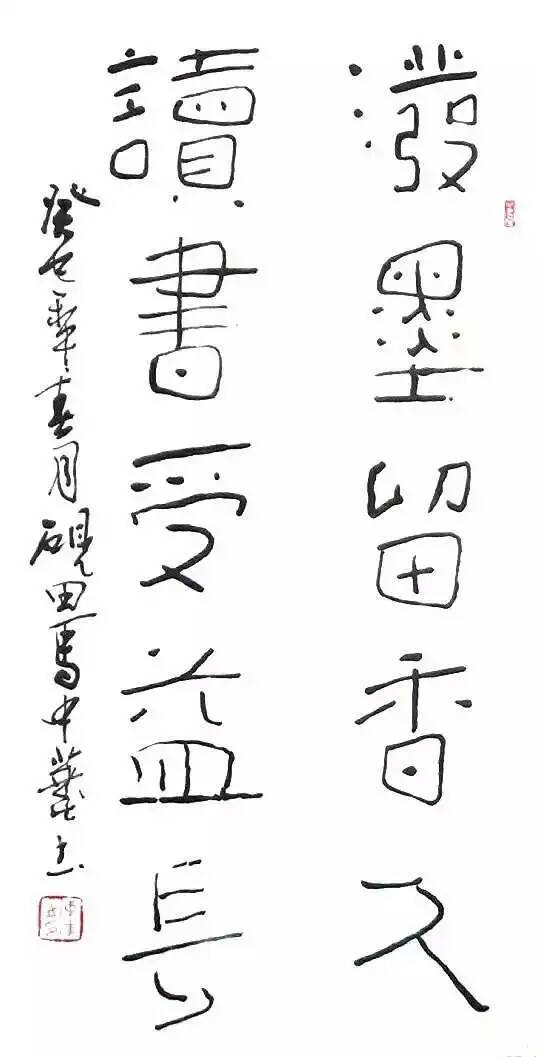 潑墨留香久
讀書受益長
癸巳年春月硯田馬中书